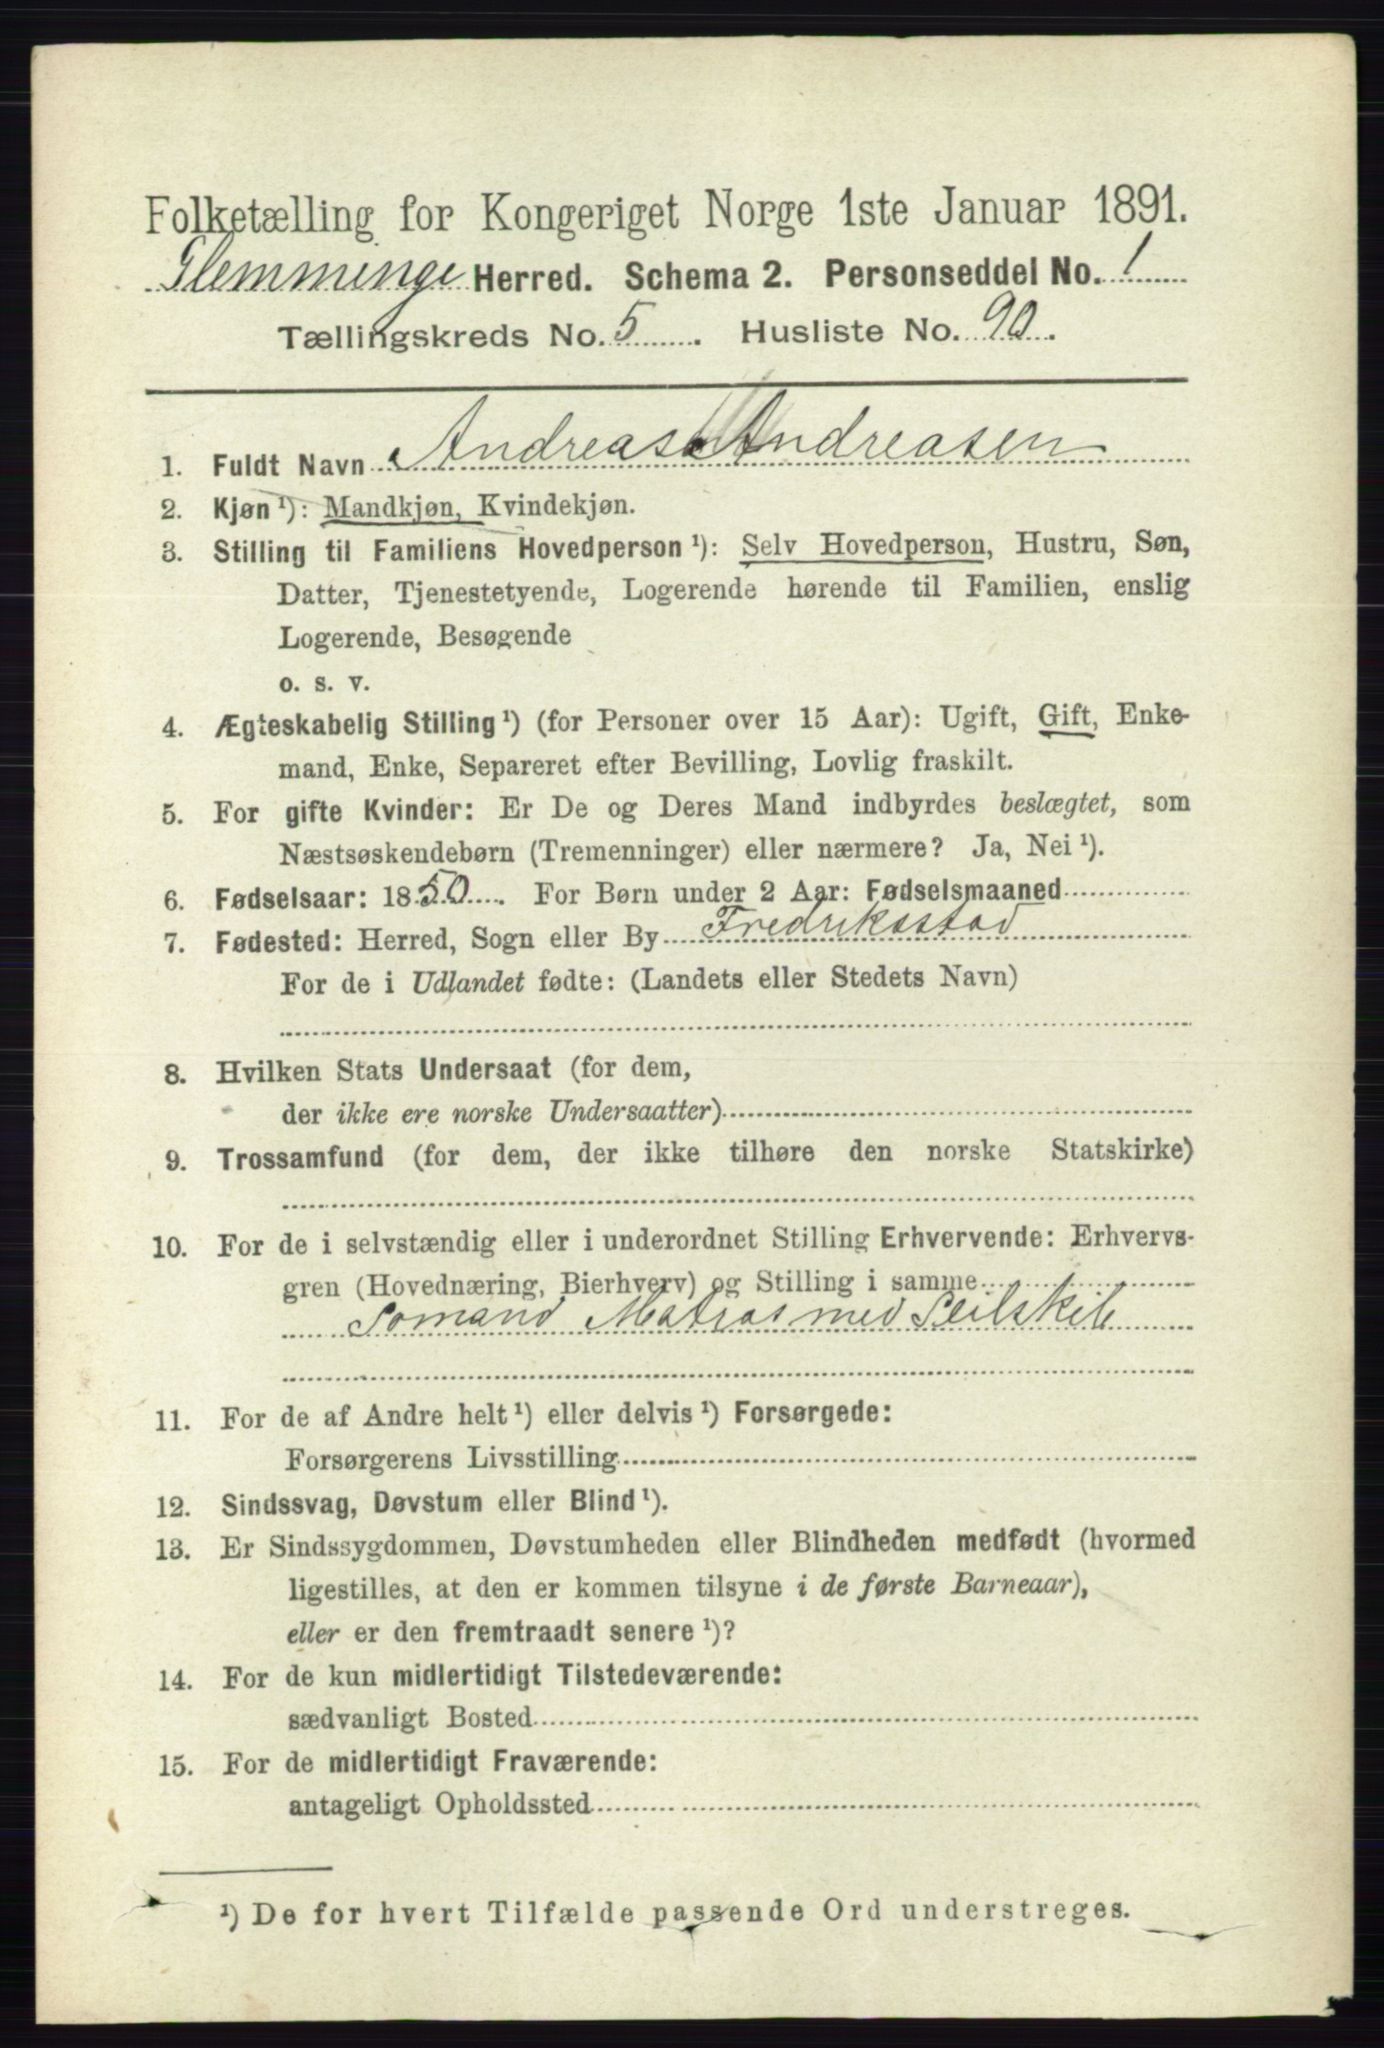 Folketælling for Kongeriget Norge 1ste Januar 1891.
Glemminge Herred. Schema 2. Personseddel No. 1
Tællingskreds No. 5. Husliste No. 90.
1. Fuldt Navn Andreas Andreasen
2. Kjøn ¹): Mandkjøn, Kvindekjøn.
3. Stilling til Familiens Hovedperson ¹): Selv Hovedperson, Hustru, Søn,
Datter, Tjenestetyende, Logerende hørende til Familien, enslig
Logerende, Besøgende
o. s. v.
4. Ægteskabelig Stilling ¹) (for Personer over 15 Aar): Ugift, Gift, Enke-
mand, Enke, Separeret efter Bevilling, Lovlig fraskilt.
5. For gifte Kvinder: Er De og Deres Mand indbyrdes beslægtet, som
Næstsøskendebørn (Tremenninger) eller nærmere? Ja, Nei ¹).
6. Fødselsaar: 1850. For Børn under 2 Aar: Fødselsmaaned
7. Fødested: Herred, Sogn eller By Fredriksstad
For de i Udlandet fødte: (Landets eller Stedets Navn)
8. Hvilken Stats Undersaat (for dem,
der ikke ere norske Undersaatter)
9. Trossamfund (for dem, der ikke tilhøre den norske Statskirke)
10. For de i selvstændig eller i underordnet Stilling Erhvervende: Erhvervs-
gren (Hovednæring, Bierhverv) og Stilling i samme
Somand Matros med Seilskib
11. For de af Andre helt ¹) eller delvis ¹) Forsørgede:
Forsørgerens Livsstilling
12. Sindssvag, Døvstum eller Blind ¹).
13. Er Sindssygdommen, Døvstumheden eller Blindheden medfødt (hvormed
ligestilles, at den er kommen tilsyne i de første Barneaar),
eller er den fremtraadt senere ¹)?
14. For de kun midlertidigt Tilstedeværende:
sædvanligt Bosted
15. For de midlertidigt Fraværende:
antageligt Opholdssted
¹) De for hvert Tilfælde passende Ord understreges.